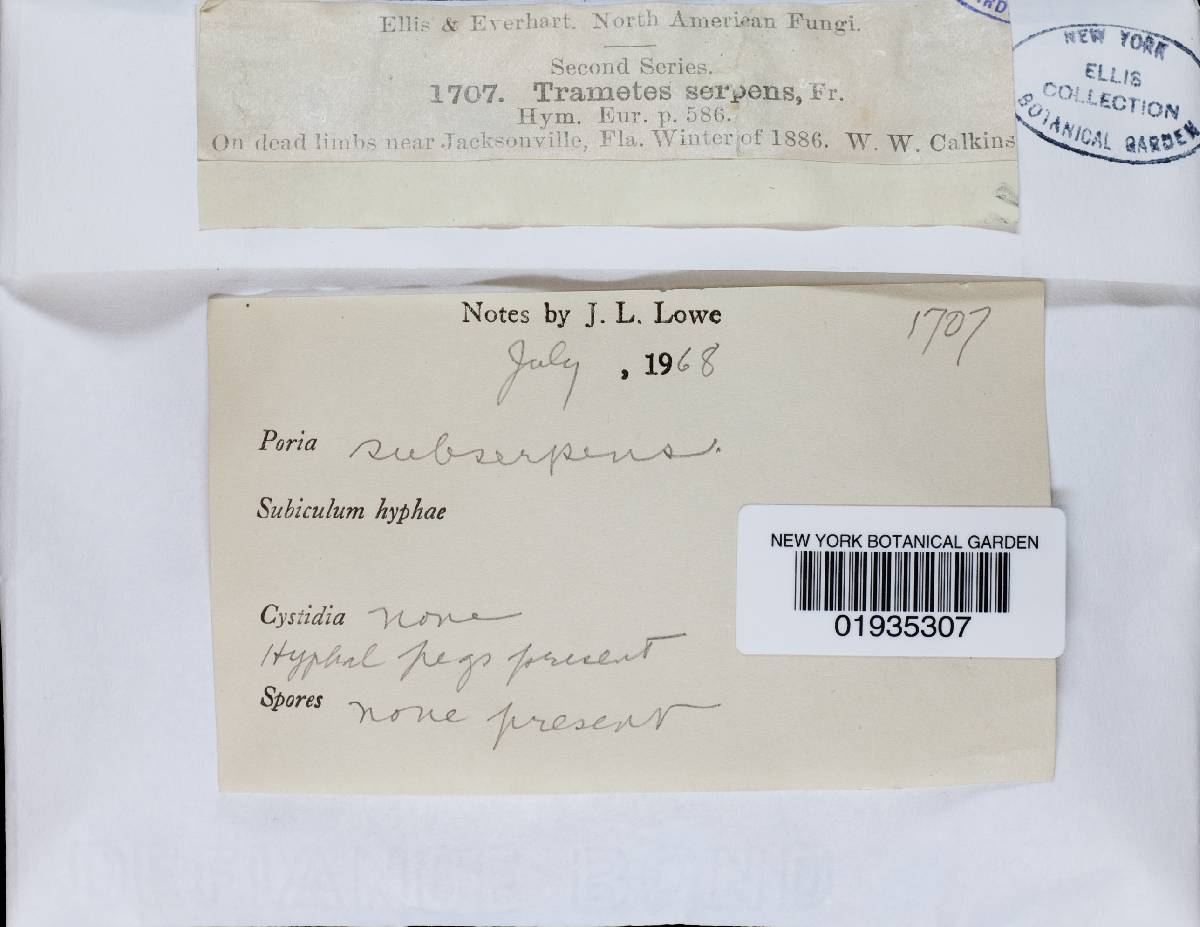 Ellis & Everhart. North American Fungi.
Second Series.
1707. Trametes serpens, Fr.
Hym. Eur. p. 586.
On dead limbs near Jacksonville, Fla. Winter of 1886. W. W. Calkins
NEW YORK
ELLIS
COLLECTION
BOTANICAL GARDEN
Notes by J. L. Lowe
1707
July , 1968
Poria subserpens.
Subiculum hyphae
NEW YORK BOTANICAL GARDEN
01935307
Cystidia none
Hyphal pegs present
Spores none present